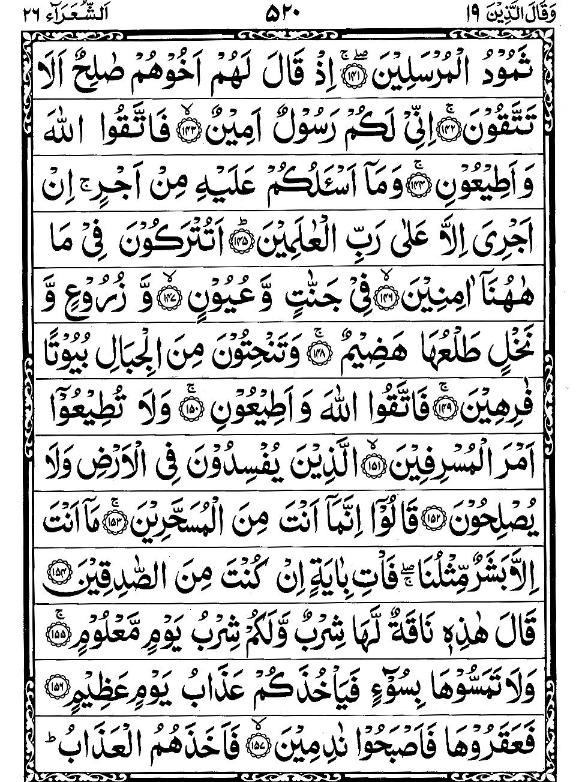 وَقَالَ الَّذِيْنَ ١٩ ٥٢٠ اَلشُّعَرَآء ٢٦
ثَمُوْدُ الْمُرْسَلِيْنَ ﴿١٤١﴾ اِذْ قَالَ لَهُمْ اَخُوْهُمْ صٰلِحٌ اَلَا
تَتَّقُوْنَ ﴿١٤٢﴾ اِنِّىْ لَكُمْ رَسُوْلٌ اَمِيْنٌ ﴿١٤٣﴾ فَاتَّقُوا اللّٰهَ
وَاَطِيْعُوْنِ ﴿١٤٤﴾ وَمَآ اَسْـَٔلُكُمْ عَلَيْهِ مِنْ اَجْرٍ ۚ اِنْ
اَجْرِىَ اِلَّا عَلٰى رَبِّ الْعٰلَمِيْنَ ﴿١٤٥﴾ اَتُتْرَكُوْنَ فِىْ مَا
هٰهُنَآ اٰمِنِيْنَ ﴿١٤٦﴾ فِىْ جَنّٰتٍ وَّعُيُوْنٍ ﴿١٤٧﴾ وَّزُرُوْعٍ وَّ
نَخْلٍ طَلْعُهَا هَضِيْمٌ ﴿١٤٨﴾ وَتَنْحِتُوْنَ مِنَ الْجِبَالِ بُيُوْتًا
فٰرِهِيْنَ ﴿١٤٩﴾ فَاتَّقُوا اللّٰهَ وَاَطِيْعُوْنِ ﴿١٥٠﴾ وَلَا تُطِيْعُوْٓا
اَمْرَ الْمُسْرِفِيْنَ ﴿١٥١﴾ الَّذِيْنَ يُفْسِدُوْنَ فِى الْاَرْضِ وَلَا
يُصْلِحُوْنَ ﴿١٥٢﴾ قَالُوْٓا اِنَّمَآ اَنْتَ مِنَ الْمُسَحَّرِيْنَ ﴿١٥٣﴾ مَآ اَنْتَ
اِلَّا بَشَرٌ مِّثْلُنَا ۖ فَاْتِ بِاٰيَةٍ اِنْ كُنْتَ مِنَ الصّٰدِقِيْنَ ﴿١٥٤﴾
قَالَ هٰذِهٖ نَاقَةٌ لَّهَا شِرْبٌ وَّلَكُمْ شِرْبُ يَوْمٍ مَّعْلُوْمٍ ﴿١٥٥﴾
وَلَا تَمَسُّوْهَا بِسُوْٓءٍ فَيَاْخُذَكُمْ عَذَابُ يَوْمٍ عَظِيْمٍ ﴿١٥٦﴾
فَعَقَرُوْهَا فَاَصْبَحُوْا نٰدِمِيْنَ ﴿١٥٧﴾ فَاَخَذَهُمُ الْعَذَابُ ؕ